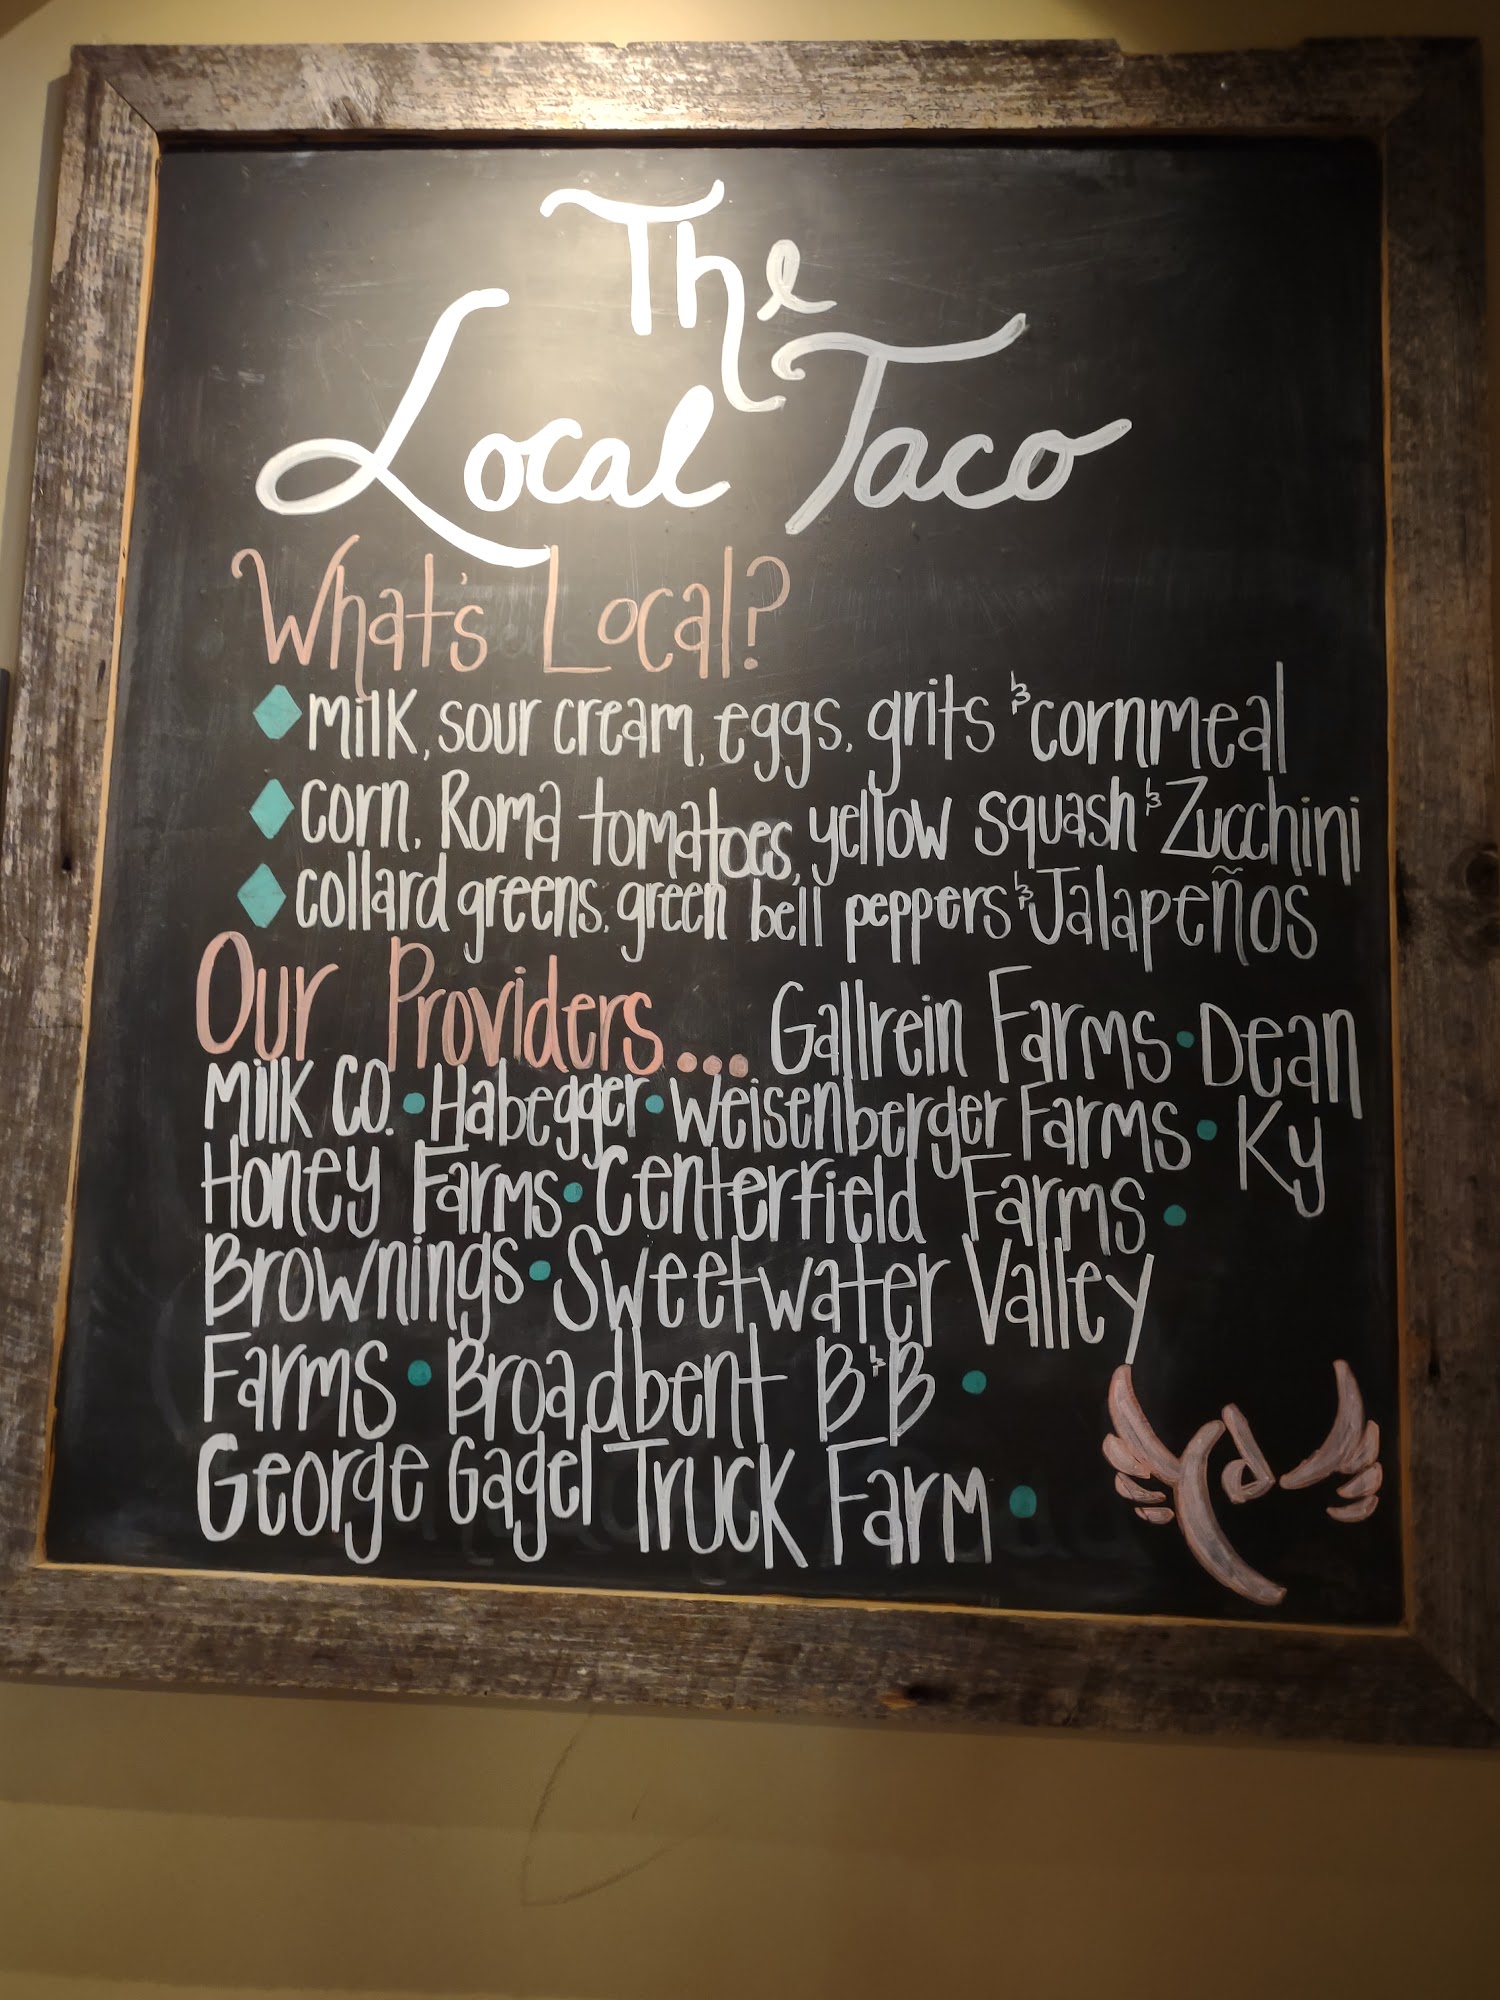 The
Local Taco
What's Local?
milk, sour cream, eggs, grits & cornmeal
corn, Roma tomatoes, yellow squash & Zucchini
collard greens, green bell peppers & Jalapeños
Our Providers... Gallrein Farms • Dean
Milk Co. • Habegger • Weisenberger Farms • Ky
Honey Farms • Centerfield Farms •
Brownings • Sweetwater Valley
Farms • Broadbent B&B •
George Gagel Truck Farm •